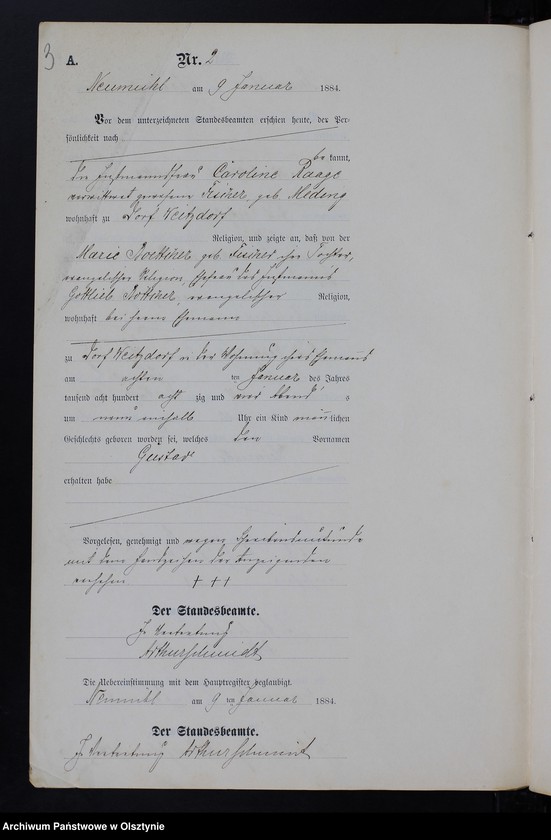 3 A. Nr. 2
Neumühl am 9 Januar 1884.
Vor dem unterzeichneten Standesbeamten erschien heute, der Per-
sönlichkeit nach
be kannt,
die Caroline Raage
geb. Meding
wohnhaft zu Dorf Weitzdorf
Religion, und zeigte an, daß von der
Marie geb. Fischer ihre Tochter,
evangelischer Religion, Ehefrau des
Gottlieb evangelischer Religion,
wohnhaft bei ihrem Ehemann
zu Dorf Weitzdorf in der Wohnung ihres Ehemanns
am achten ten Januar des Jahres
tausend acht hundert acht zig und vier Abends
um neun einhalb Uhr ein Kind männlichen
Geschlechts geboren worden sei, welches den Vornamen
Gustav
erhalten habe
Vorgelesen, genehmigt und wegen
mit dem Handzeichen der Anzeigenden
versehen + + +
Der Standesbeamte.
In Vertretung
Arthur Schmidt
Die Uebereinstimmung mit dem Hauptregister beglaubigt.
Neumühl am 9 ten Januar 1884.
Der Standesbeamte.
In Vertretung Arthur Schmidt
Archiwum Państwowe w Olsztynie